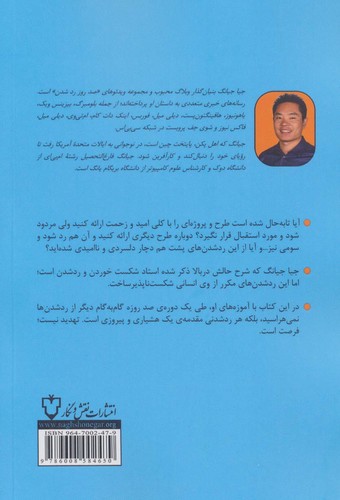 جیا جیانگ بنیان‌گذار وبلاگ محبوب و مجموعه ویدئوهای «صد روز رد شدن» است.
رسانه‌های خبری متعددی به داستان او پرداخته‌اند؛ از جمله بلومبرگ، بیزینس ویک،
یاهونیوز، هافینگتون‌پست، دیلی میل، فوربس، اینک دات کام، ام‌تی‌وی، دیلی میل،
فاکس نیوز و شوی جف پروبست در شبکه سی‌بی‌اس.
جیانگ که اهل پکن، پایتخت چین است، در نوجوانی به ایالات متحدهٔ آمریکا رفت تا
رؤیای خود را دنبال‌کند و کارآفرین شود. جیانگ فارغ‌التحصیل رشتهٔ ام‌بی‌ای از
دانشگاه دوک و کارشناس علوم کامپیوتر از دانشگاه بریگام یانگ است.
آیا تابه‌حال شده است طرح و پروژه‌ای را با کلی امید و زحمت ارائه کنید ولی مردود
شود و مورد استقبال قرار نگیرد؟ دوباره طرح دیگری ارائه کنید و آن هم رد شود و
سومی نیز...و آیا از این ردشدن‌های پشت هم دچار دلسردی و ناامیدی شده‌اید؟
جیا جیانگ که شرح حالش دربالا ذکر شده استاد شکست خوردن و ردشدن است؛
اما این ردشدن‌های مکرر از وی انسانی شکست‌ناپذیرساخت.
در این کتاب با آموزه‌های او، طی یک دوره‌ی صد روزه گام‌به‌گام دیگر از ردشدن‌ها
نمی‌هراسید، بلکه هر ردشدنی مقدمه‌ی یک هشیاری و پیروزی است. تهدید نیست؛
فرصت است.
انتشارات نقش و نگار
www.naghshonegar.org
ISBN 964-7002-47-9
9 786008 384650